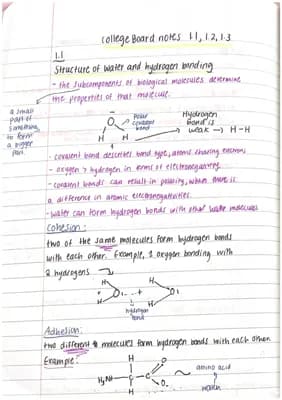 college Board notes 1.1, 1.2, 1.3
1.1
Structure of water and hydrogen bonding
- the subcomponents of biological molecules determine
the properties of that molecule.
a small
part of
something
to form
a bigger
part.
Polar
covalent
bond
O
H H
Hydrogen
bond is
weak → H-H
- covalent bond describes bond type, atoms sharing electrons
- oxygen > hydrogen in terms of electronegativity
- covalent bonds can result in polarity, when there is
a difference in atomic electronegativities.
- water can form hydrogen bonds with other water molecules
Cohesion:
two of the same molecules form hydrogen bonds
with each other. Example, 1 oxygen bonding with
2 hydrogens
H H
O O
H H
hydrogen
bond
Adhesion:
two different molecules form hydrogen bonds with each other.
Example:
H O
H₃N C C
H O
amino acid
water